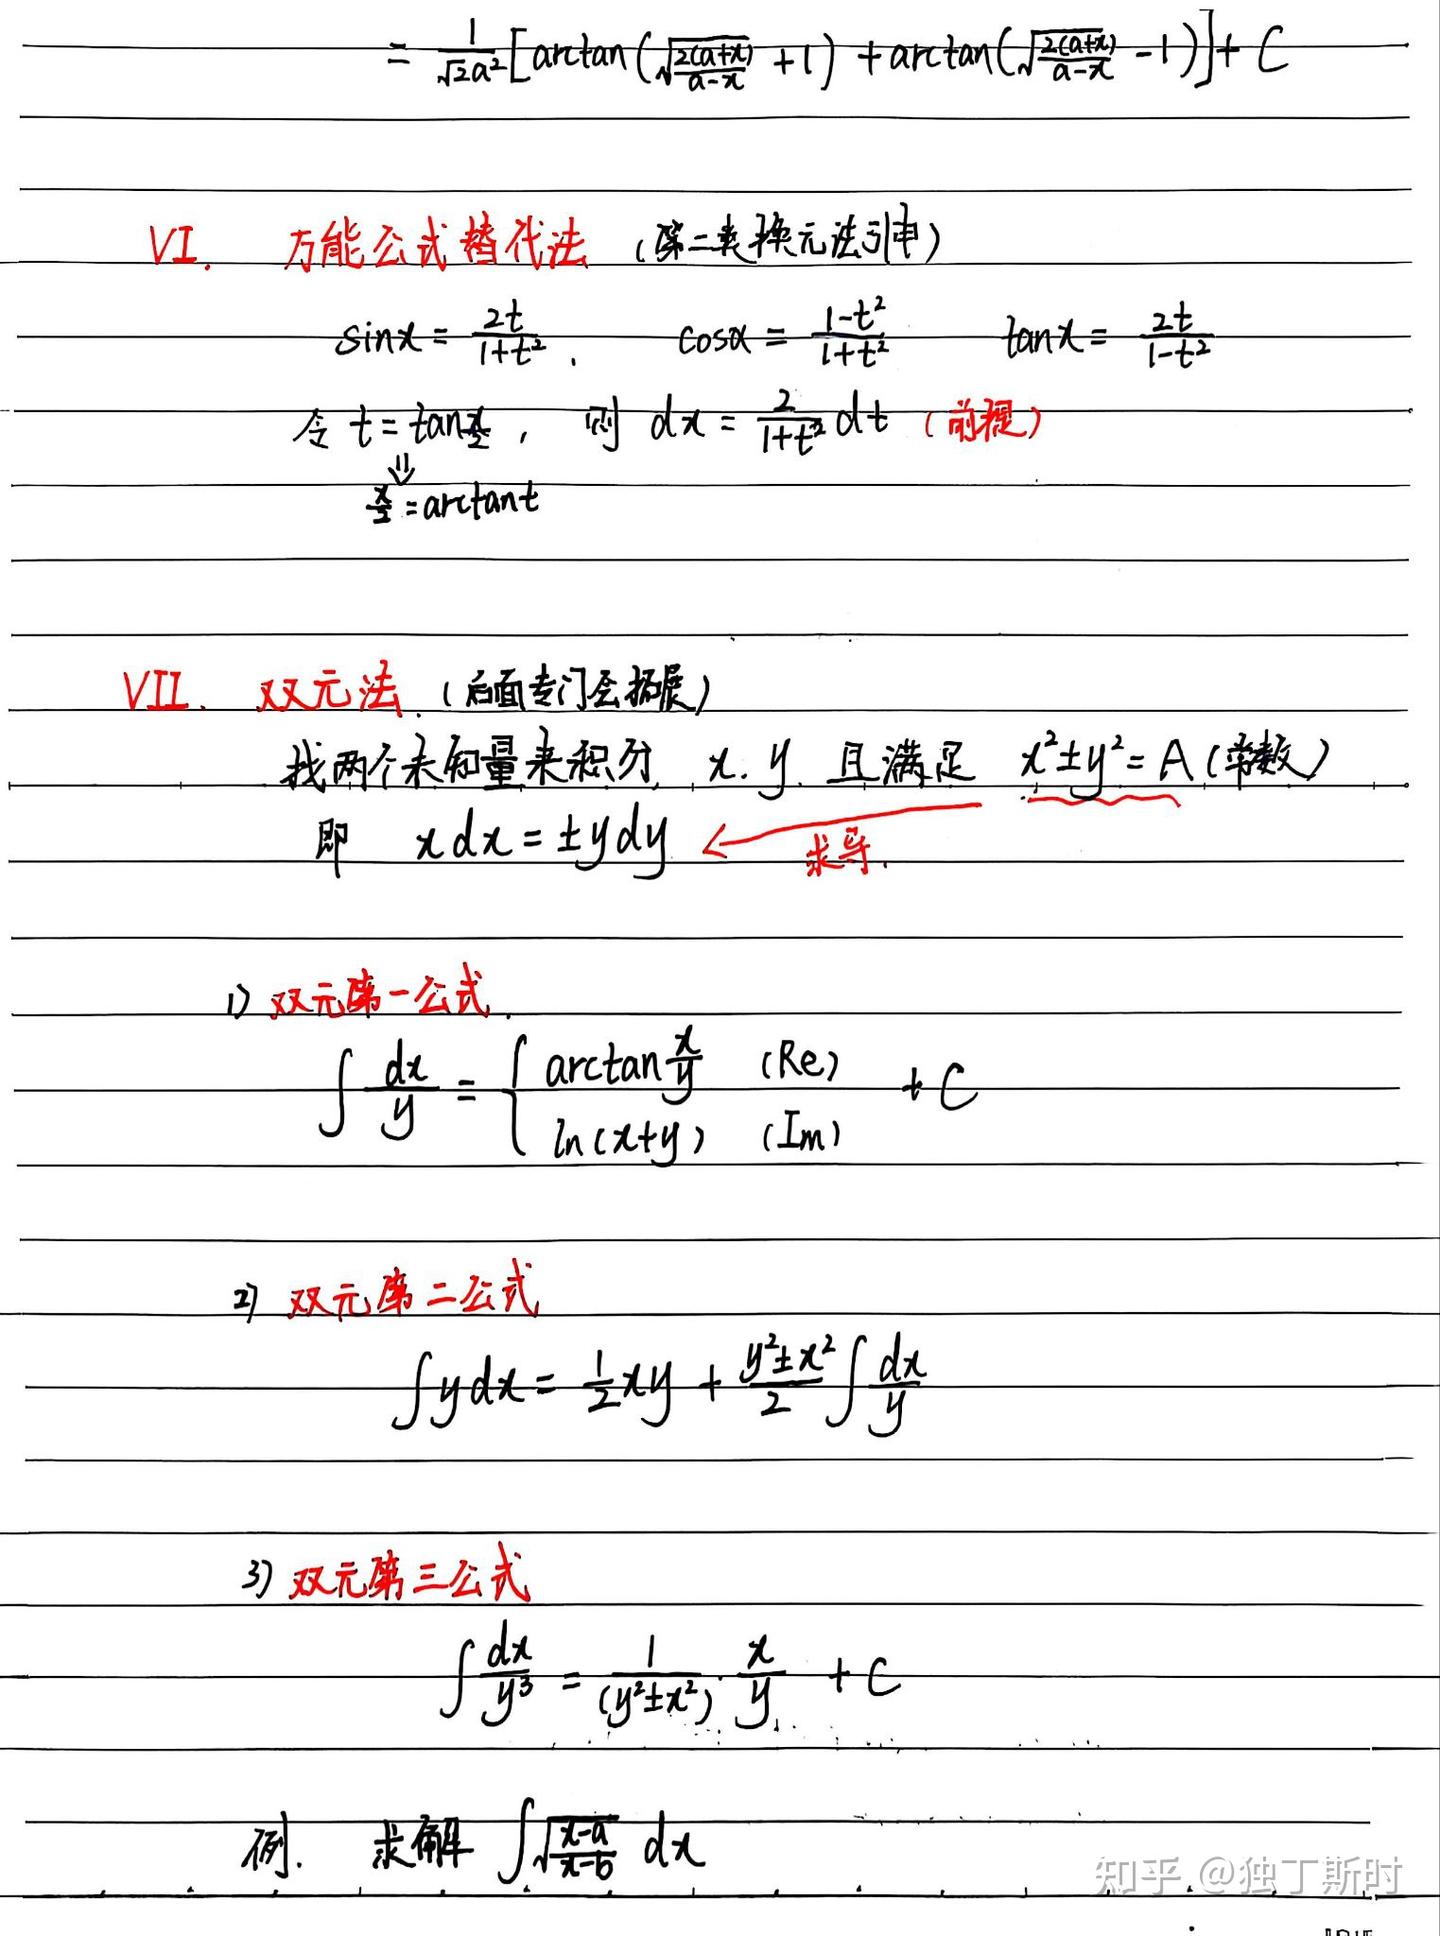 = 1/(√2a²) [arctan(√(2(a+x)/(a-x)) + 1) + arctan(√(2(a+x)/(a-x)) - 1)] + C
VI. 万能公式替代法 (第二类换元法引申)
sinx = 2t/(1+t²). cosx = (1-t²)/(1+t²) tanx = 2t/(1-t²)
令 t = tan x/2, 则 dx = 2/(1+t²) dt (前提)
⇓
x/2 = arctant
VII. 双元法. (后面专门会拓展)
找两个未知量来积分, x. y. 且满足 x²±y² = A (常数)
即 xdx = ±ydy ← 求导.
1) 双元第一公式.
∫ dx/y = { arctan x/y (Re)
ln(x+y) (Im) + C
2) 双元第二公式
∫ydx = 1/2 xy + (y²±x²)/2 ∫ dx/y
3) 双元第三公式
∫ dx/y³ = 1/(y²±x²) · x/y + C
例. 求解 ∫√((x-a)/(x-b)) dx
知乎 @独丁斯时